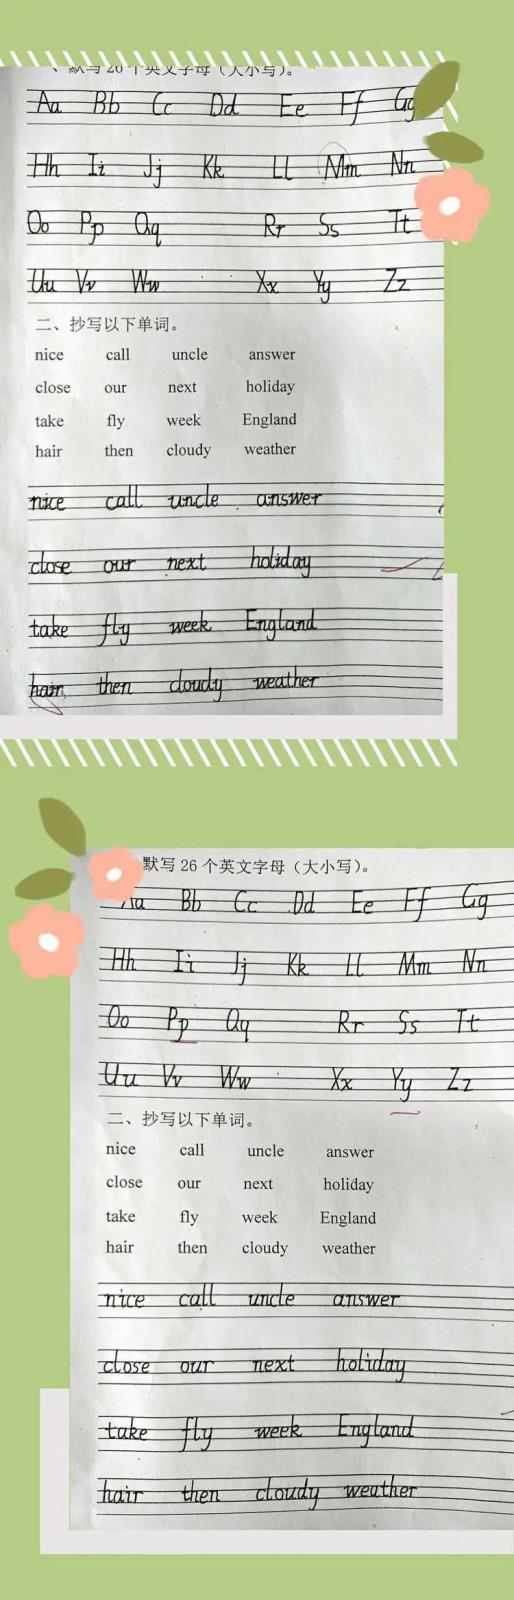 、默写26个英文字母（大小写）。
Aa Bb Cc Dd Ee Ff Gg
Hh Ii Jj Kk Ll Mm Nn
Oo Pp Qq Rr Ss Tt
Uu Vv Ww Xx Yy Zz
二、抄写以下单词。
nice call uncle answer
close our next holiday
take fly week England
hair then cloudy weather
nice call uncle answer
close our next holiday
take fly week England
hair then cloudy weather
默写26个英文字母（大小写）。
Aa Bb Cc Dd Ee Ff Gg
Hh Ii Jj Kk Ll Mm Nn
Oo Pp Qq Rr Ss Tt
Uu Vv Ww Xx Yy Zz
二、抄写以下单词。
nice call uncle answer
close our next holiday
take fly week England
hair then cloudy weather
nice call uncle answer
close our next holiday
take fly week England
hair then cloudy weather